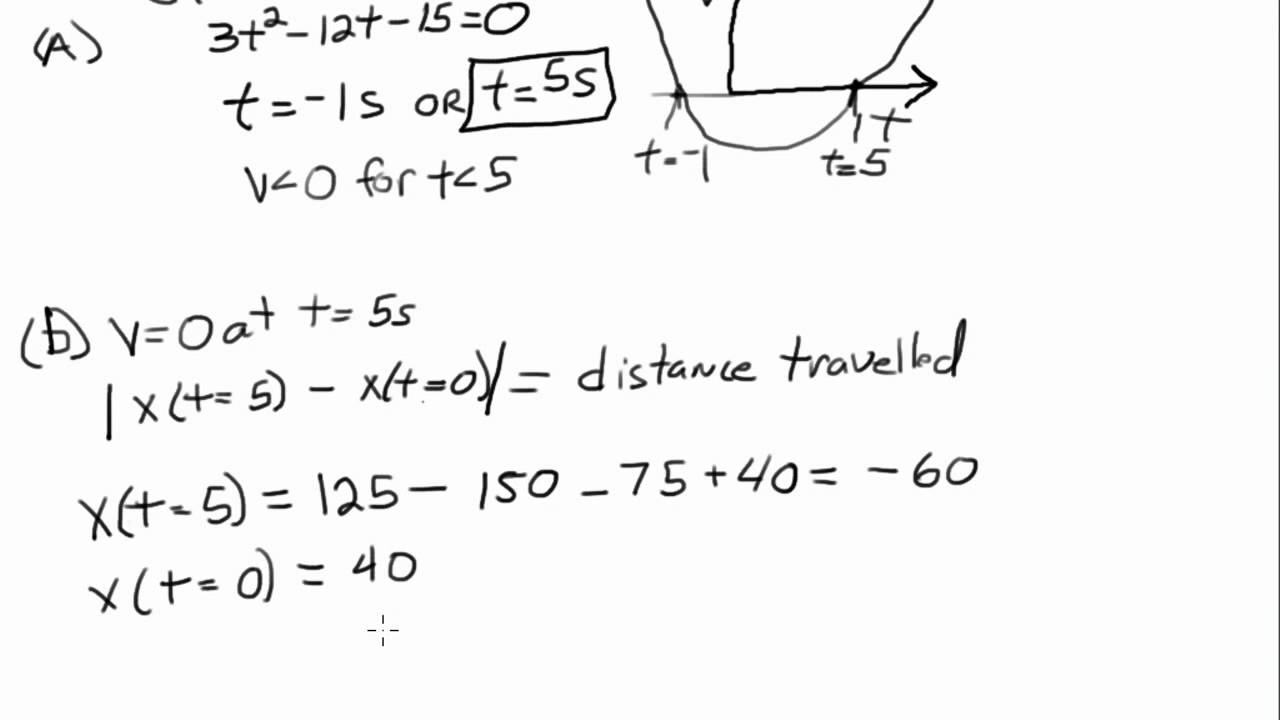 (A) 3t²-12t-15=0
t=-1s OR t=5s
v<0 for t<5
t=-1
t
t=5
(b) v=0 at t=5s
|x(t=5) - x(t=0)| = distance travelled
x(t=5) = 125 - 150 - 75 + 40 = -60
x(t=0) = 40